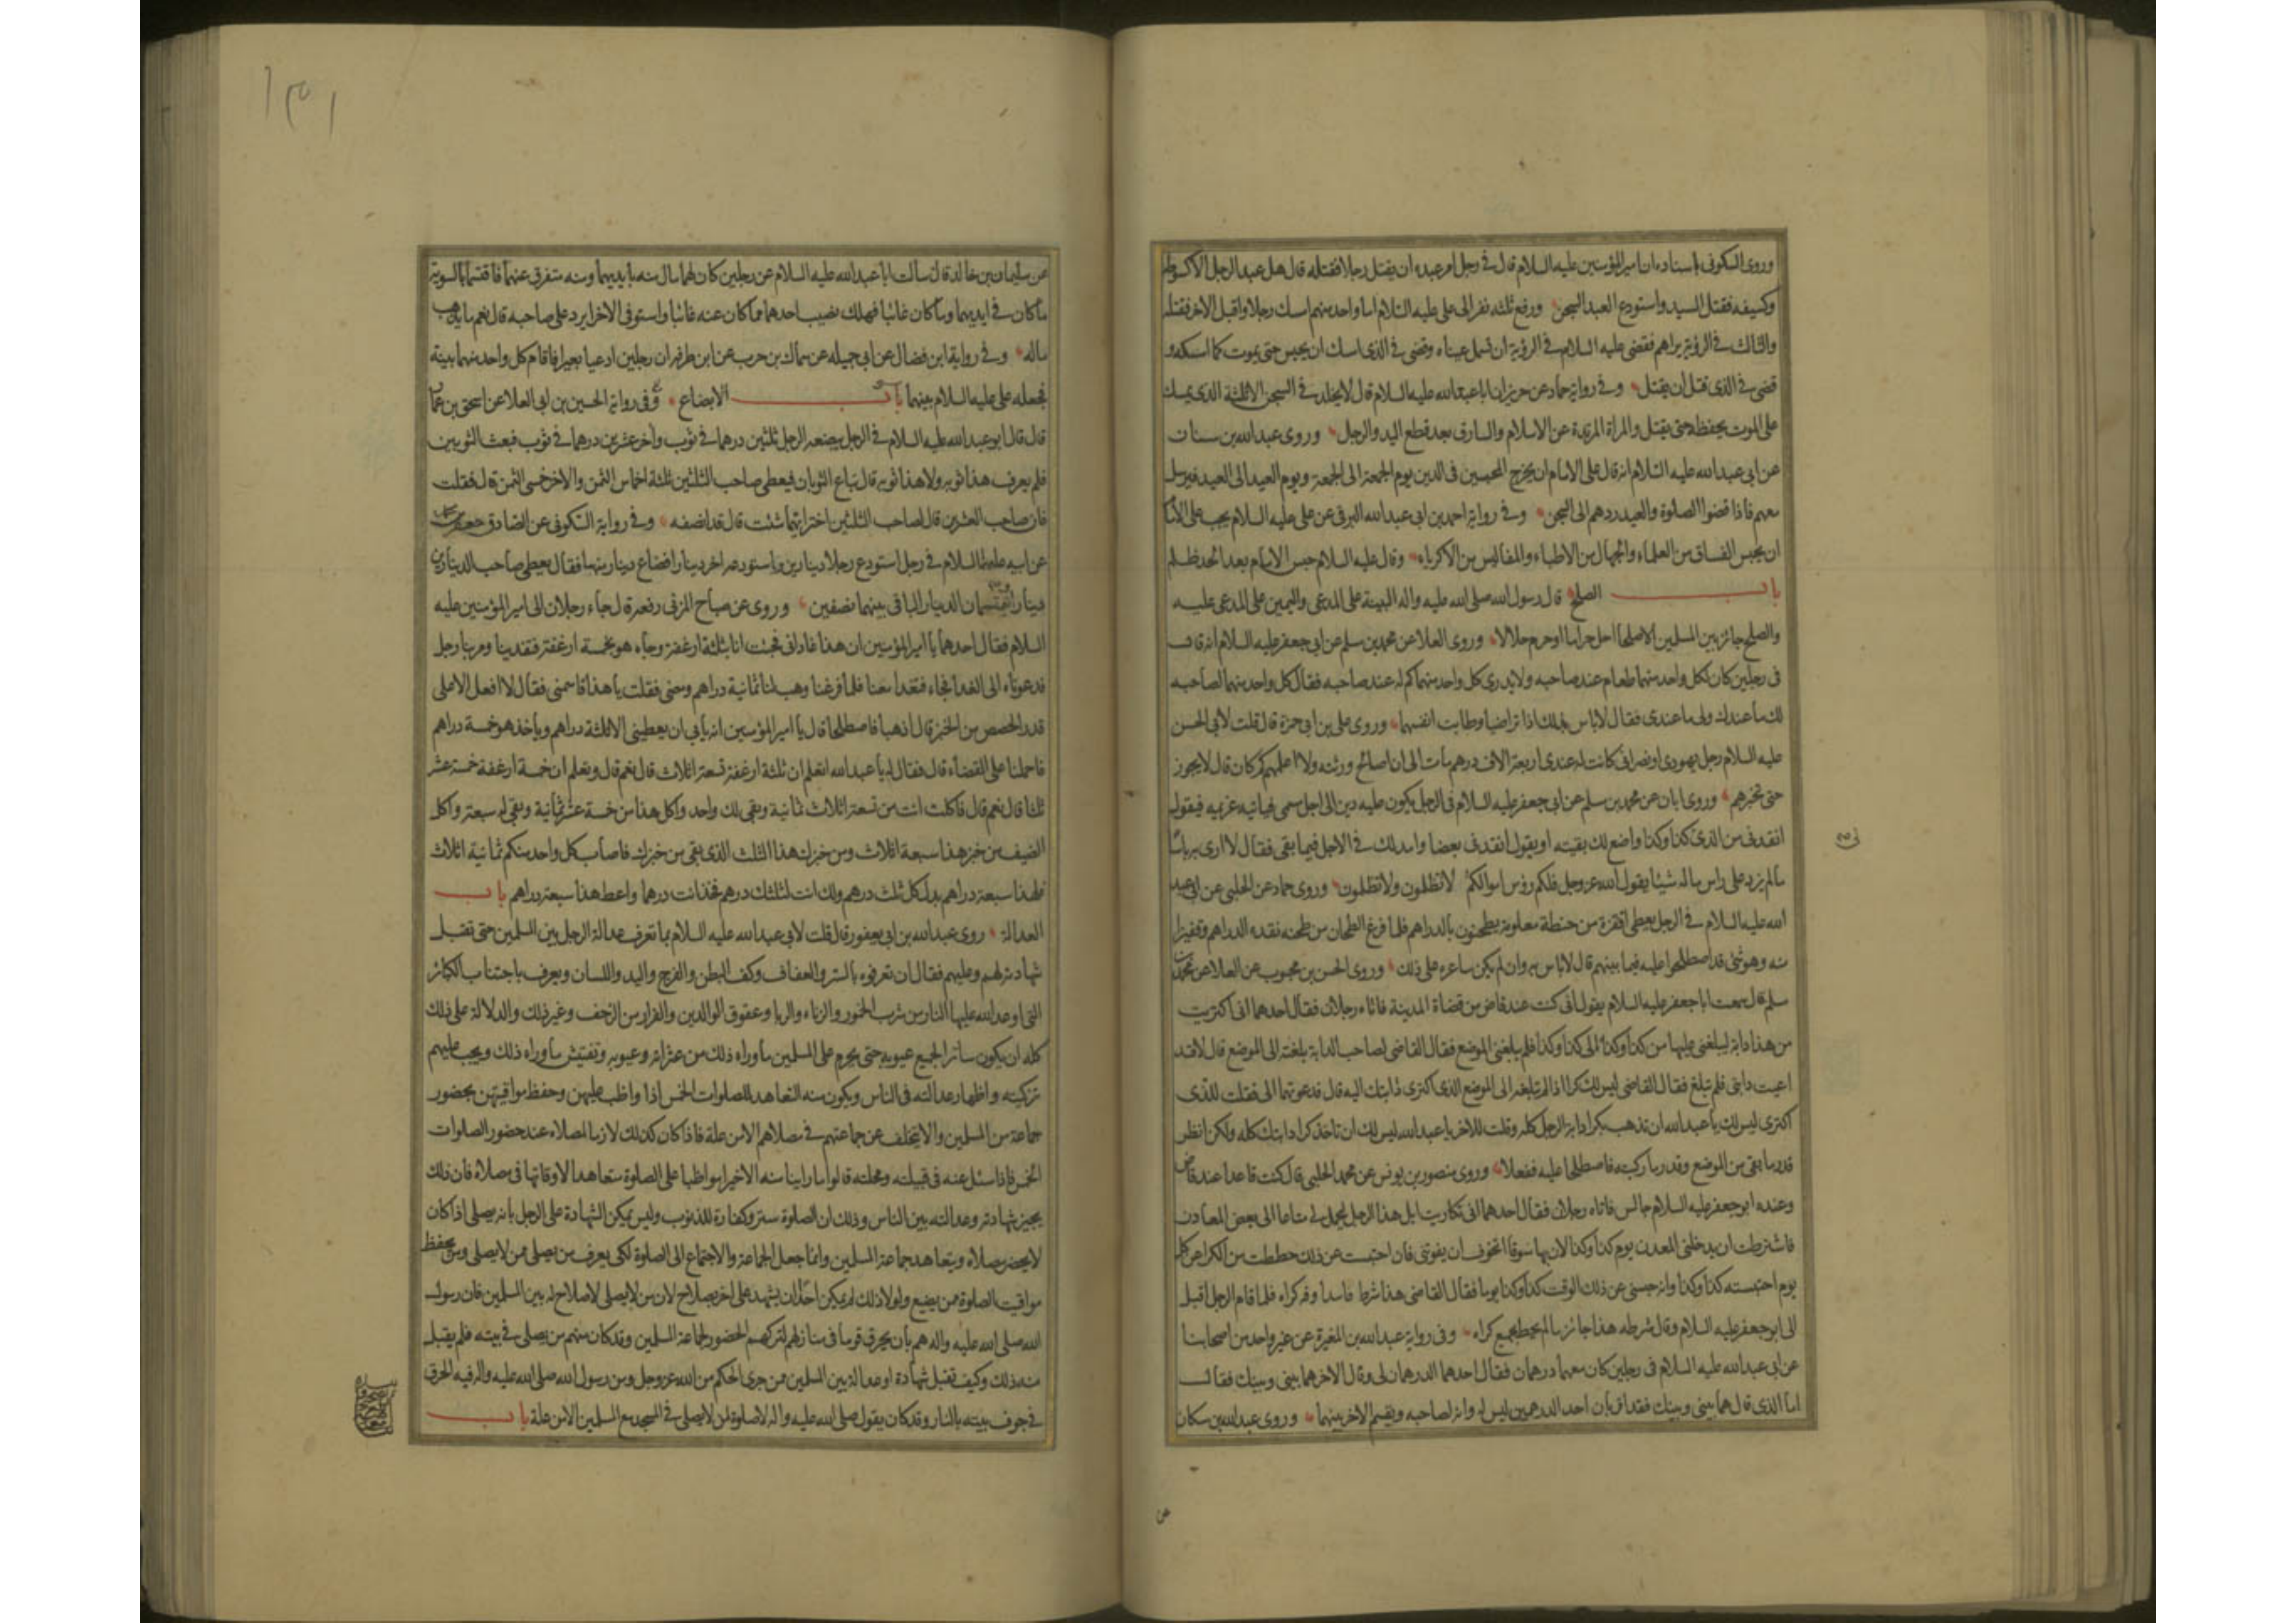 وروى السكونى باسناده ان امير المؤمنين عليه السلام قال فى رجل امر عبده ان يقتل رجلا فقتله قال هل عبد الرجل الا كسوطه
وكسيفه فقتل السيد واستودع العبد السجن ورفع ثلثه نفر الى على عليه السلام اما واحد منهم امسك رجلا واقبل الاخر فقتله
والثالث فى الرؤية يراهم فقضى عليه السلام فى الرؤية ان تسمل عيناه وقضى فى الذى امسك ان يحبس حتى يموت كما امسكه و
قضى فى الذى قتل ان يقتل وفى رواية حماد عن حريز ان ابا عبدالله عليه السلام قال لا يخلد فى السجن الا ثلثة الذى يمسك
على الموت يحفظه حتى يقتل والمراة المرتدة عن الاسلام والسارق بعد قطع اليد والرجل وروى عبدالله بن سنان
عن ابى عبدالله عليه السلام انه قال على الامام ان يخرج المحبسين فى الدين يوم الجمعة الى الجمعة ويوم العيد الى العيد فيرسل
معهم فاذا قضوا الصلوة والعيد ردهم الى السجن وفى رواية احمد بن ابى عبدالله البرقى عن على عليه السلام يجب على الامام
ان يحبس الفساق من العلماء والجهال من الاطباء والمفاليس من الاكرياء وقال عليه السلام حبس الامام بعد الحد ظلم
باب الصلح قال رسول الله صلى الله عليه واله البينة على المدعى واليمين على المدعى عليه
والصلح جائز بين المسلمين الا صلحا احل حراما او حرم حلالا وروى العلا عن محمد بن مسلم عن ابى جعفر عليه السلام انه قال
فى رجلين كان لكل واحد منهما طعام عند صاحبه ولا يدرى كل واحد منهما كم له عند صاحبه فقال كل واحد منهما لصاحبه
لك ما عندك ولى ما عندى فقال لا باس بذلك اذا تراضيا وطابت انفسهما وروى على بن ابى حمزة قال قلت لابى الحسن
عليه السلام رجل يهودى او نصرانى كانت له عندى اربعة الاف درهم مات الى ان اصالح ورثته ولا اعلمهم كم كان قال لا يجوز
حتى تخبرهم وروى ابان عن محمد بن مسلم عن ابى جعفر عليه السلام فى الرجل يكون عليه دين الى اجل مسمى فياتيه غريمه فيقول
انقدنى من الذى كذا وكذا واضع لك بقيته او يقول انقدنى بعضا وامد لك فى الاجل فيما بقى فقال لا ارى به باسا
ما لم يزد على راس ماله شيئا يقول الله عز وجل فلكم رؤس اموالكم لا تظلمون ولا تظلمون وروى حماد عن الحلبى عن ابى عبد
الله عليه السلام فى الرجل يعطى اقفزة من حنطة معلومة يطحنون بالدراهم فلما فرغ الطحان من طحنه نقده الدراهم وقفيزا
منه وهو شئ قد اصطلحوا عليه فيما بينهم قال لا باس به وان لم يكن ساعره على ذلك وروى الحسن بن محبوب عن العلا عن محمد بن
مسلم قال سمعت ابا جعفر عليه السلام يقول انى كنت عند قاض من قضاة المدينة فاتاه رجلان فقال احدهما انى اكتريت
من هذا دابة ليبلغنى عليها من كذا وكذا الى كذا وكذا فلم يبلغنى الموضع فقال القاضى لصاحب الدابة بلغته الى الموضع قال لا قد
اعيت دابتى فلم تبلغ فقال القاضى ليس لك كرا اذا لم تبلغه الى الموضع الذى اكترى دابتك اليه قال فدعوتهما الى فقلت للذى
اكترى ليس لك يا عبدالله ان تذهب بكرا دابة الرجل كله وقلت للاخر يا عبدالله ليس لك ان تاخذ كرا دابتك كله ولكن انظر
قدر ما بقى من الموضع وقدر ما ركبته فاصطلحا عليه ففعلا وروى منصور بن يونس عن محمد الحلبى قال كنت قاعدا عند قاض
وعنده ابو جعفر عليه السلام جالس فاتاه رجلان فقال احدهما انى تكاريت ابل هذا الرجل ليحمل لى متاعا الى بعض المعادن
فاشترطت ان يدخلنى المعدن يوم كذا وكذا لان بها سوقا اتخوف ان يفوتنى فان احتبست عن ذلك حططت من الكرا عن كل
يوم احتبسته كذا وكذا وانه حبسنى عن ذلك الوقت كذا وكذا يوما فقال القاضى هذا شرط فاسد وفه كراه فلما قام الرجل اقبل
الى ابو جعفر عليه السلام وقال شرطه هذا جائز ما لم يحط بجميع كراه وفى رواية عبدالله بن المغيرة عن غير واحد من اصحابنا
عن ابى عبدالله عليه السلام فى رجلين كان معهما درهمان فقال احدهما الدرهمان لى وقال الاخر هما بينى وبينك فقال
اما الذى قال هما بينى وبينك فقد اقر بان احد الدرهمين ليس له وانه لصاحبه ويقسم الاخر بينهما وروى عبدالله بن مسكان
عن
عن سليمان بن خالد قال سالت ابا عبدالله عليه السلام عن رجلين كان لهما مال منه بايديهما ومنه متفرق عنهما فاقتسما بالسوية
ما كان فى ايديهما وما كان غائبا فهلك نصيب احدهما مما كان عنه غائبا واستوفى الاخر ايرد على صاحبه قال نعم ما يذهب
ماله وفى رواية ابن فضال عن ابى جميله عن سماك بن حرب عن ابن طرفه ان رجلين ادعيا بعيرا فاقام كل واحد منهما بينة
فجعله على عليه السلام بينهما باب الابضاع وفى رواية الحسين بن ابى العلا عن اسحق بن عمار
قال قال ابو عبدالله عليه السلام فى الرجل يبضعه الرجل ثلثين درهما فى ثوب واخر عشرين درهما فى ثوب فبعث الثوبين
فلم يعرف هذا ثوبه ولا هذا ثوبه قال تباع الثوبان فيعطى صاحب الثلثين ثلثة اخماس الثمن والاخر خمسى الثمن قال فقلت
فان صاحب العشرين قال لصاحب الثلثين اختر ايهما شئت قال قد انصفه وفى رواية السكونى عن الصادق جعفر بن محمد
عن ابيه عليهما السلام فى رجل استودع رجلا دينارين واستودعه اخر دينارا فضاع دينار منهما فقال يعطى صاحب الدينارين
دينارا ويقتسمان الدينار الباقى بينهما نصفين وروى عن صباح المزنى رفعه قال جاء رجلان الى امير المؤمنين عليه
السلام فقال احدهما يا امير المؤمنين ان هذا غادانى فجئت انا بثلثة ارغفة وجاء هو بخمسة ارغفة فتغدينا ومر بنا رجل
فدعوناه الى الغدا فجاء فتغدا معنا فلما فرغنا وهب لنا ثمانية دراهم ومضى فقلت يا هذا قاسمنى فقال لا افعل الا على
قدر الحصص من الخبز قال اذهبا فاصطلحا قال يا امير المؤمنين انه يابى ان يعطينى الا ثلثة دراهم وياخذ هو خمسة دراهم
فاحملنا على القضاء قال فقال له يا عبدالله اتعلم ان ثلثة ارغفة تسعة اثلاث قال نعم قال وتعلم ان خمسة ارغفة خمسة عشر
ثلثا قال نعم قال فاكلت انت من تسعة اثلاث ثمانية وبقى لك واحد واكل هذا من خمسة عشر ثمانية وبقى له سبعة واكل
الضيف من خبز هذا سبعة اثلاث ومن خبزك هذا الثلث الذى بقى من خبزك فاصاب كل واحد منكم ثمانية اثلاث
فلهذا سبعة دراهم بدل كل ثلث درهم ولك انت لثلثك درهم فخذ انت درهما واعط هذا سبعة دراهم باب
العدالة روى عبدالله بن ابى يعفور قال قلت لابى عبدالله عليه السلام بما تعرف عدالة الرجل بين المسلمين حتى تقبل
شهادته لهم وعليهم فقال ان تعرفوه بالستر والعفاف وكف البطن والفرج واليد واللسان ويعرف باجتناب الكبائر
التى اوعد الله عليها النار من شرب الخمور والزناء والربا وعقوق الوالدين والفرار من الزحف وغير ذلك والدلالة على ذلك
كله ان يكون ساترا لجميع عيوبه حتى يحرم على المسلمين ما وراه ذلك من عثراته وعيوبه وتفتيش ما وراه ذلك ويجب عليهم
تزكيته واظهار عدالته فى الناس ويكون منه التعاهد للصلوات الخمس اذا واظب عليهن وحفظ مواقيتهن بحضور
جماعة من المسلمين والا يتخلف عن جماعتهم فى مصلاهم الا من علة فاذا كان كذلك لازما لمصلاه عند حضور الصلوات
الخمس فاذا سئل عنه فى قبيلته ومحلته قالوا ما راينا منه الا خيرا مواظبا على الصلوة متعاهدا لاوقاتها فى مصلاه فان ذلك
يجيز شهادته وعدالته بين الناس وذلك ان الصلوة ستر وكفارة للذنوب وليس يمكن الشهادة على الرجل بانه يصلى اذا كان
لا يحضر مصلاه ويتعاهد جماعة المسلمين وانما جعل الجماعة والاجتماع الى الصلوة لكى يعرف من يصلى ممن لا يصلى ومن يحفظ
مواقيت الصلوة ممن يضيع ولولا ذلك لم يمكن احدا ان يشهد على اخر بصلاح لان من لا يصلى لا صلاح له بين المسلمين فان رسول
الله صلى الله عليه واله هم بان يحرق قوما فى منازلهم لتركهم الحضور لجماعة المسلمين وقد كان منهم من يصلى فى بيته فلم يقبل
منه ذلك وكيف تقبل شهادة او عدالة بين المسلمين ممن جرى الحكم من الله عز وجل ومن رسول الله صلى الله عليه واله فيه الحرق
فى جوف بيته بالنار وقد كان يقول صلى الله عليه واله لا صلوة لمن لا يصلى فى المسجد مع المسلمين الا من علة باب